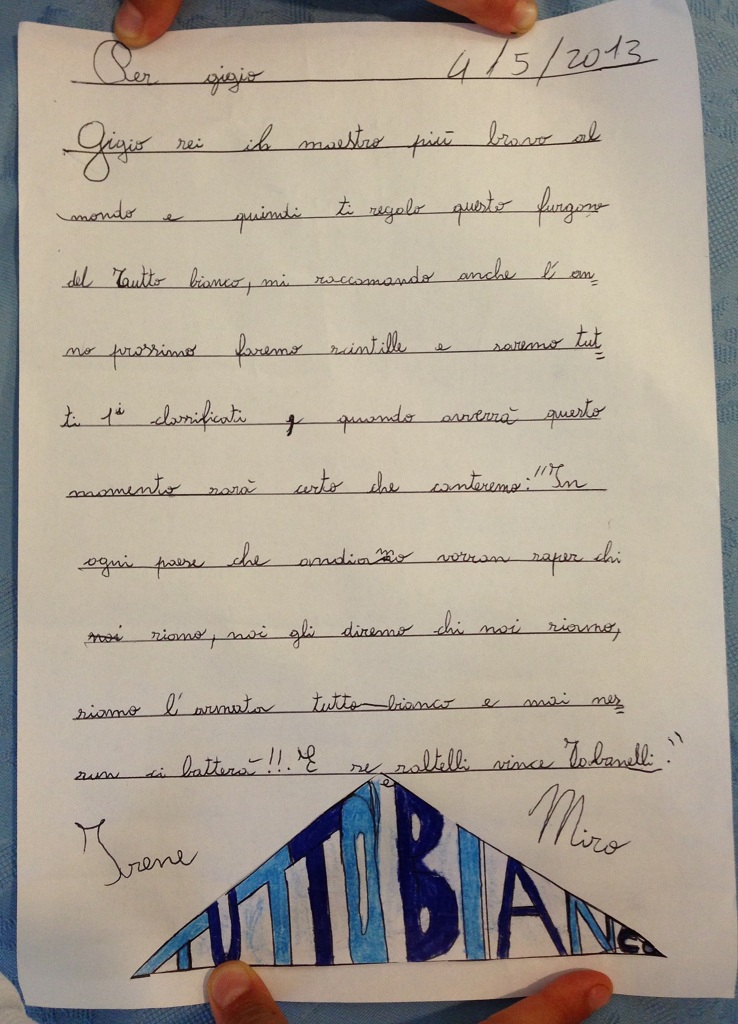 Per gigio 4/5/2013
Gigio sei il maestro più bravo al
mondo e quindi ti regalo questo furgone
del Tutto bianco, mi raccomando anche l'an=
no prossimo faremo scintille e saremo tut=
ti 1i classificati, quando avverrà questo
momento sarà certo che canteremo: "In
ogni paese che andiamo vorran saper chi
noi siamo, noi gli diremo chi noi siamo,
siamo l'armata tutto bianco e mai nes=
sun ci batterà!!!. E se saltelli vince Tabanelli."
Irene Miro
TUTTO BIANCO